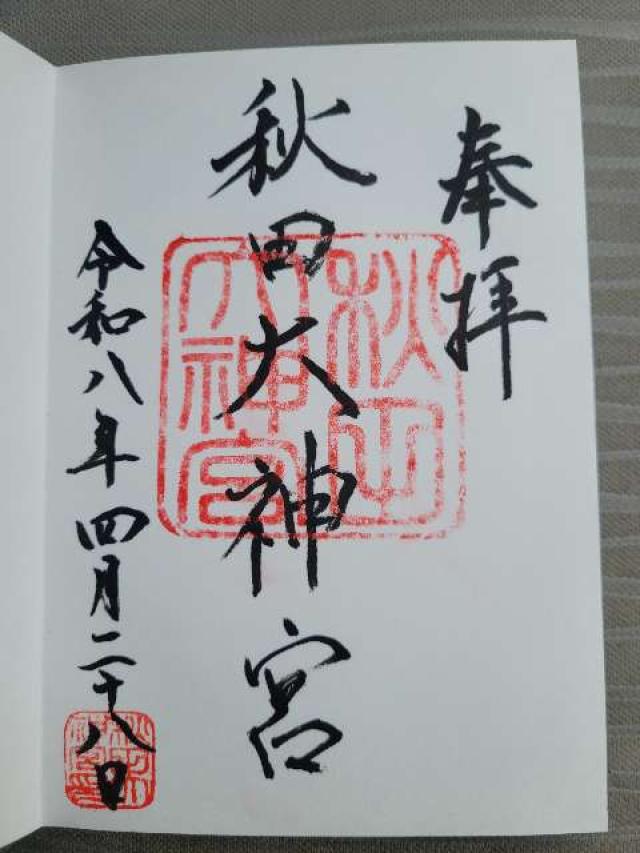 奉拝
秋田大神宮
秋田大神宮
令和八年四月二十八日